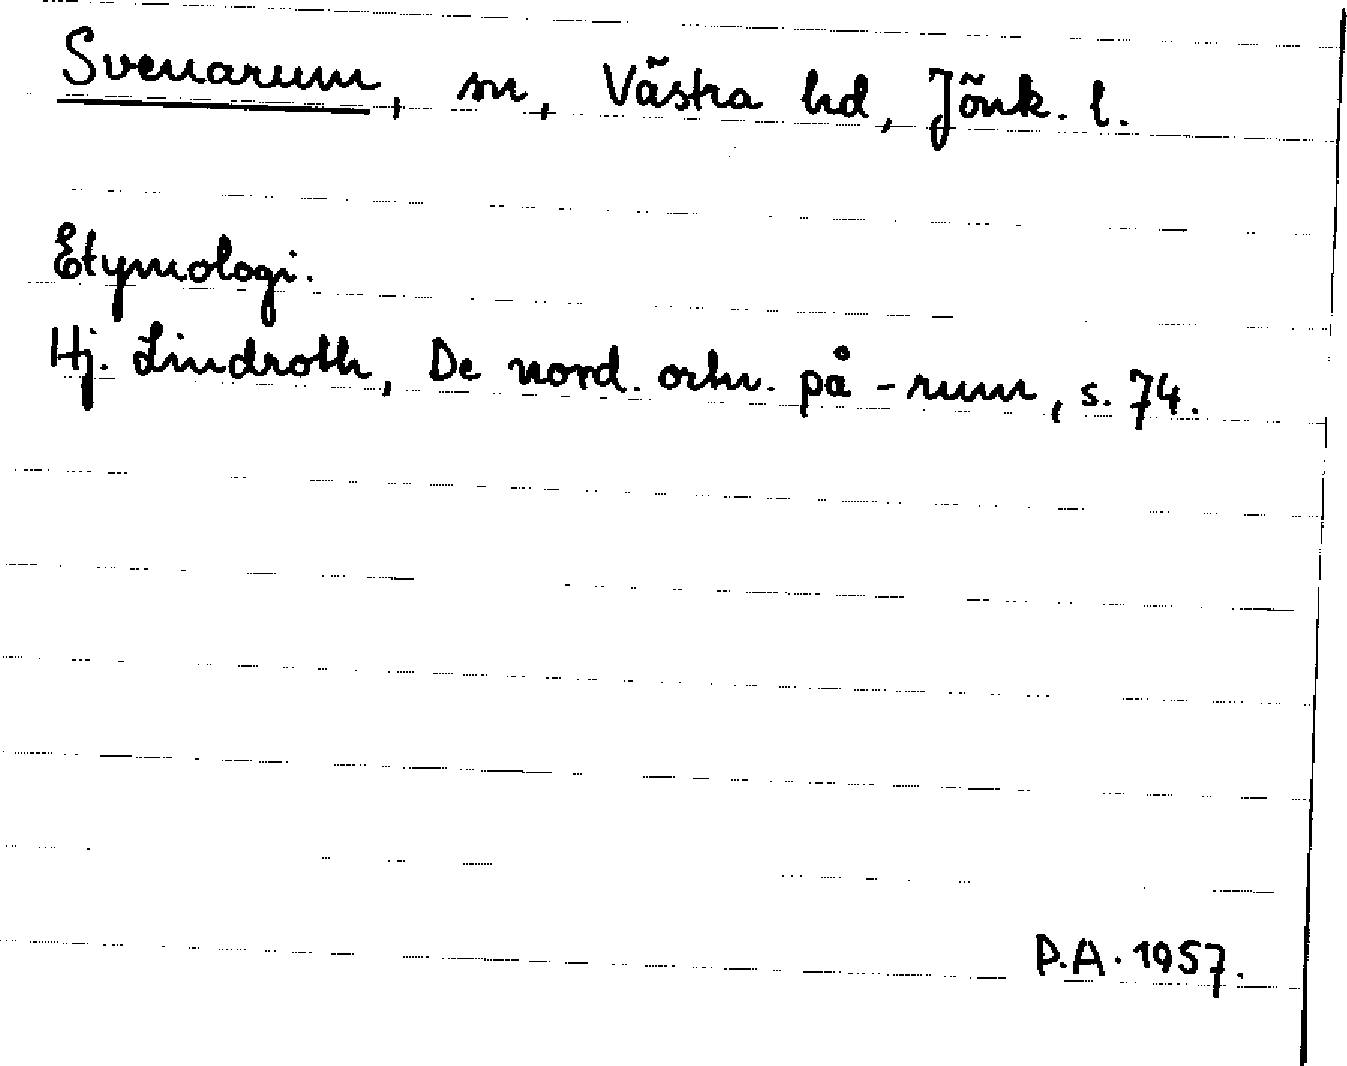 Svenarum, sn, Västra hd, Jönk. l.
Etymologi.
Hj. Lindroth, De nord. ortn. på -rum, s. 74.
P.A. 1957.